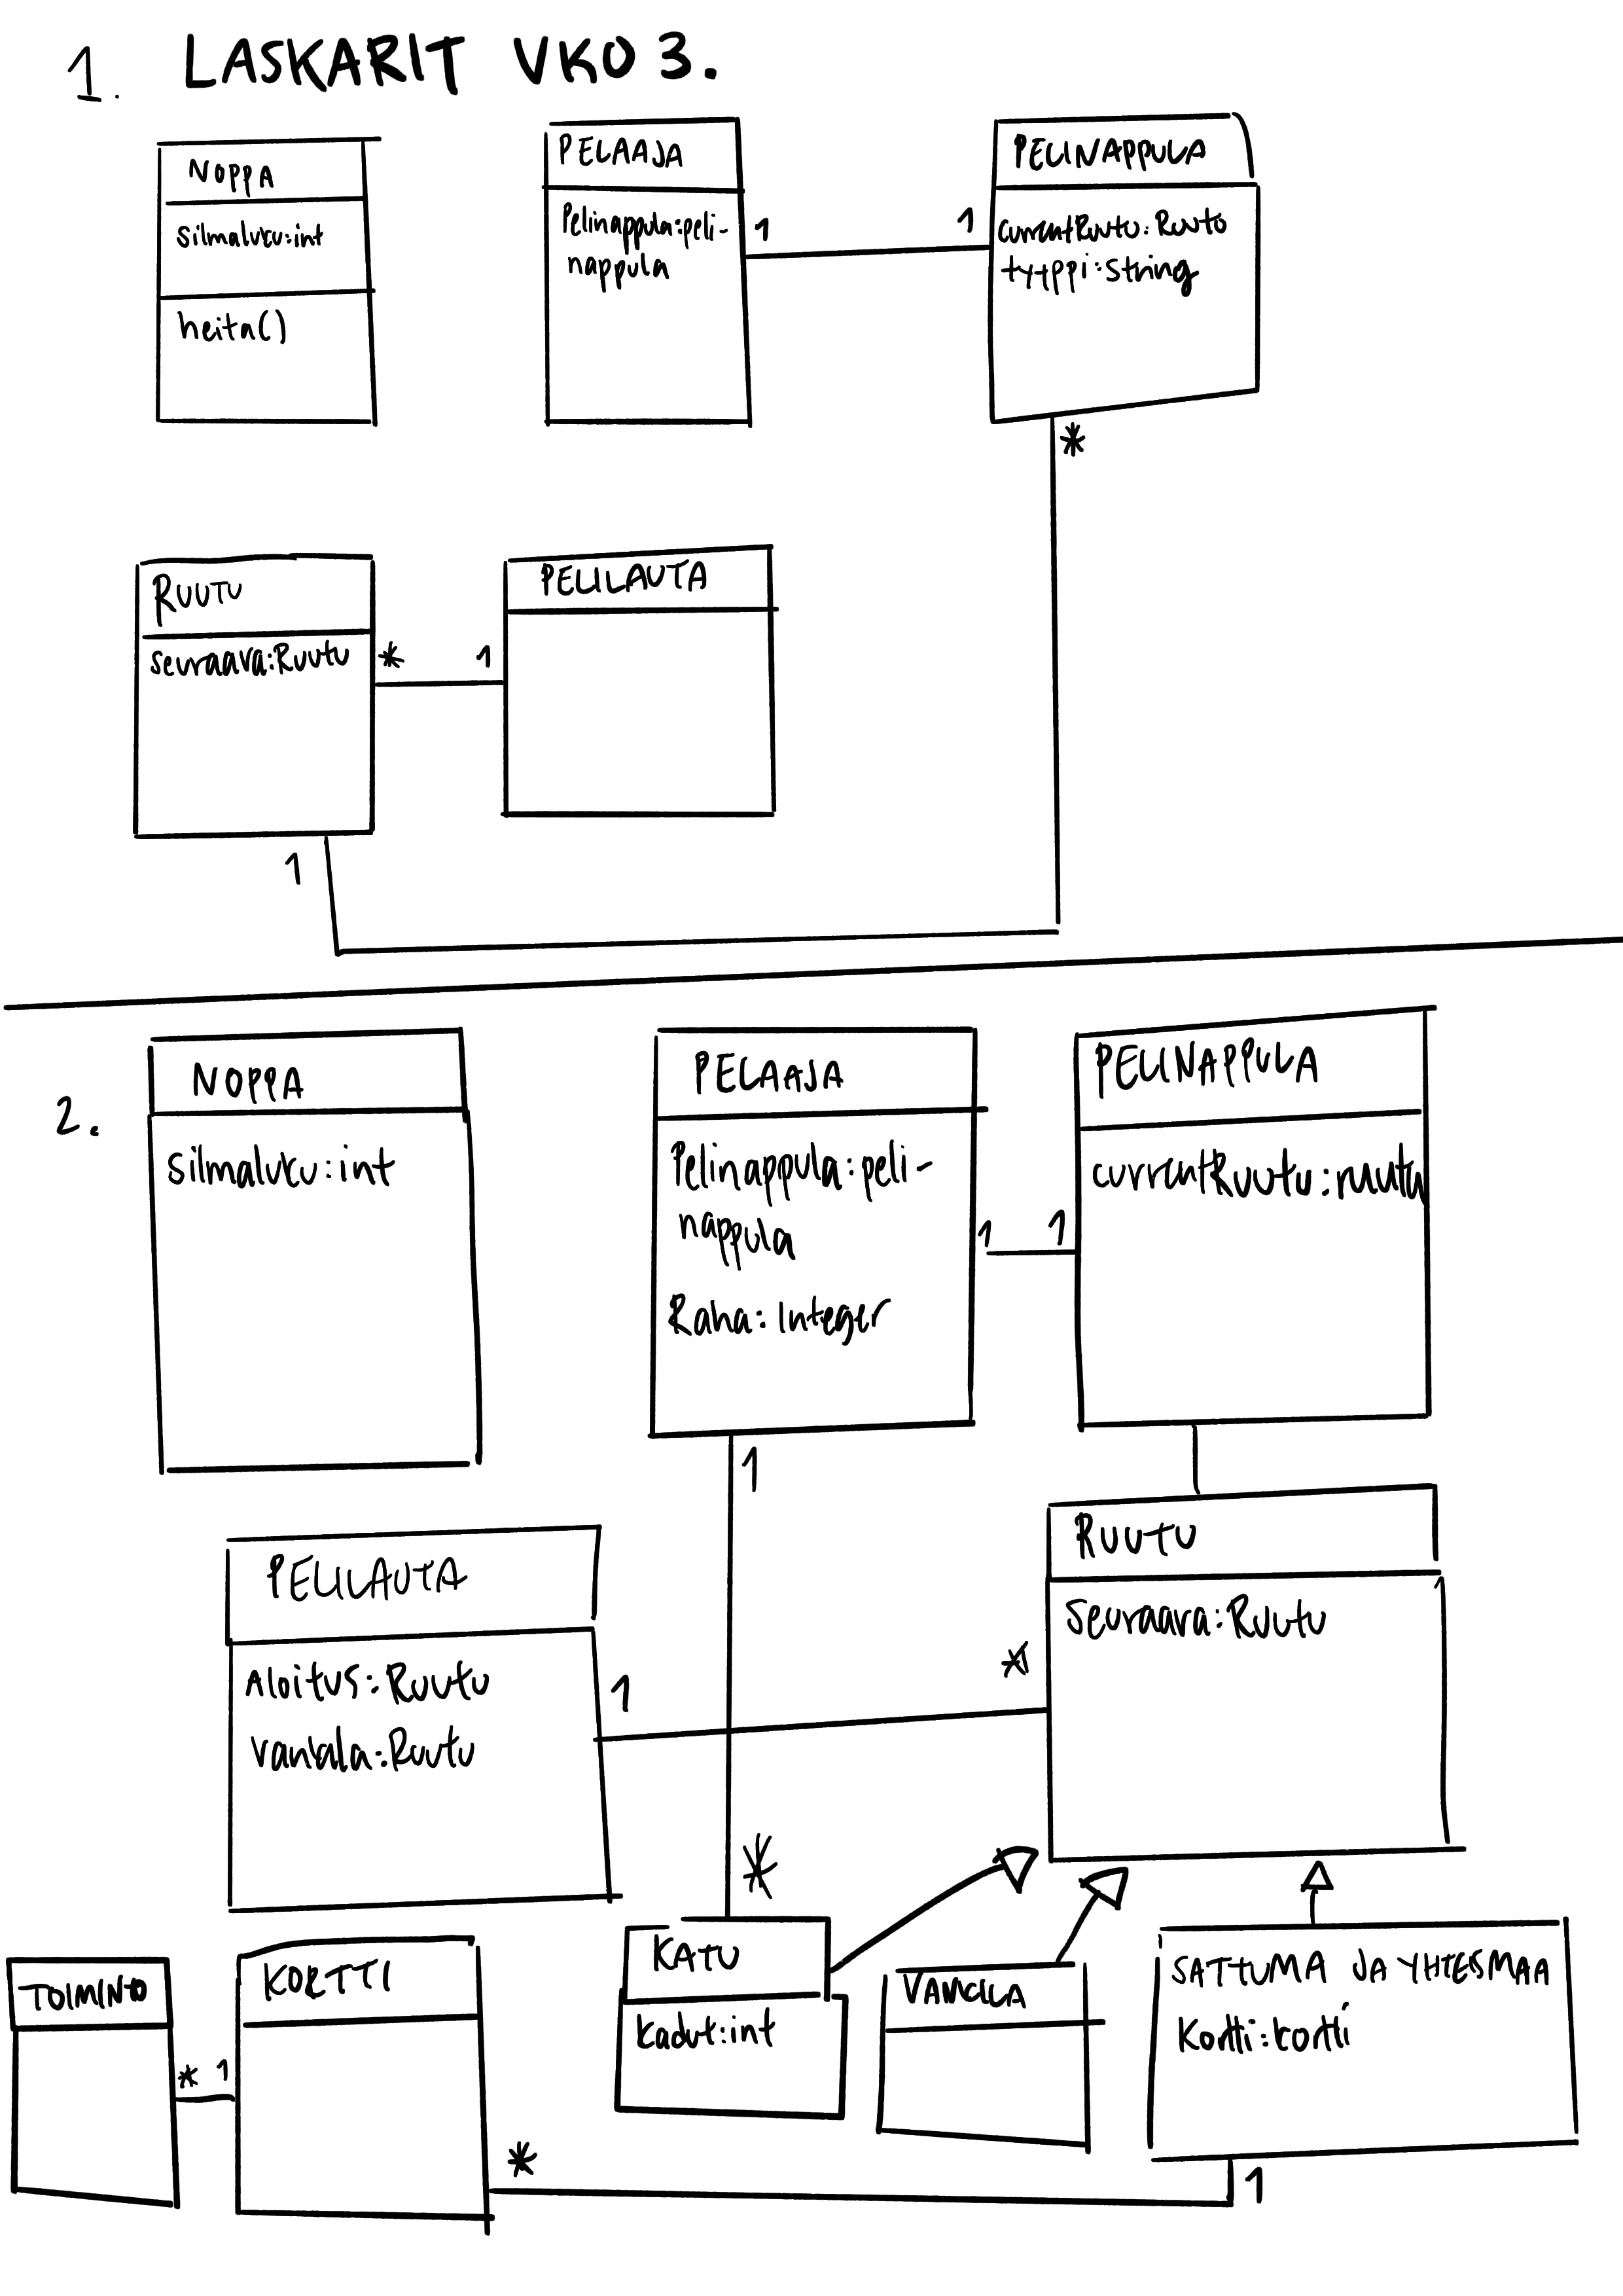 1. LASKARIT VKO 3.
NOPPA
silmaluku:int
heita()
PELAAJA
Pelinappula:peli-
nappula
1
1
PELINAPPULA
currentRuutu:Ruutu
tyyppi:String
*
RUUTU
seuraava:Ruutu
*
1
PELILAUTA
1
2.
NOPPA
silmaluku:int
PELAAJA
Pelinappula:peli-
nappula
Raha:Integer
1
1
PELINAPPULA
currentRuutu:ruutu
1
RUUTU
seuraava:Ruutu
PELILAUTA
Aloitus:Ruutu
vankala:Ruutu
1
*
*
TOIMINTO
*
1
KORTTI
KATU
kadut:int
VANKILA
SATTUMA JA YHTEISMAA
Kortti:kortti
*
1